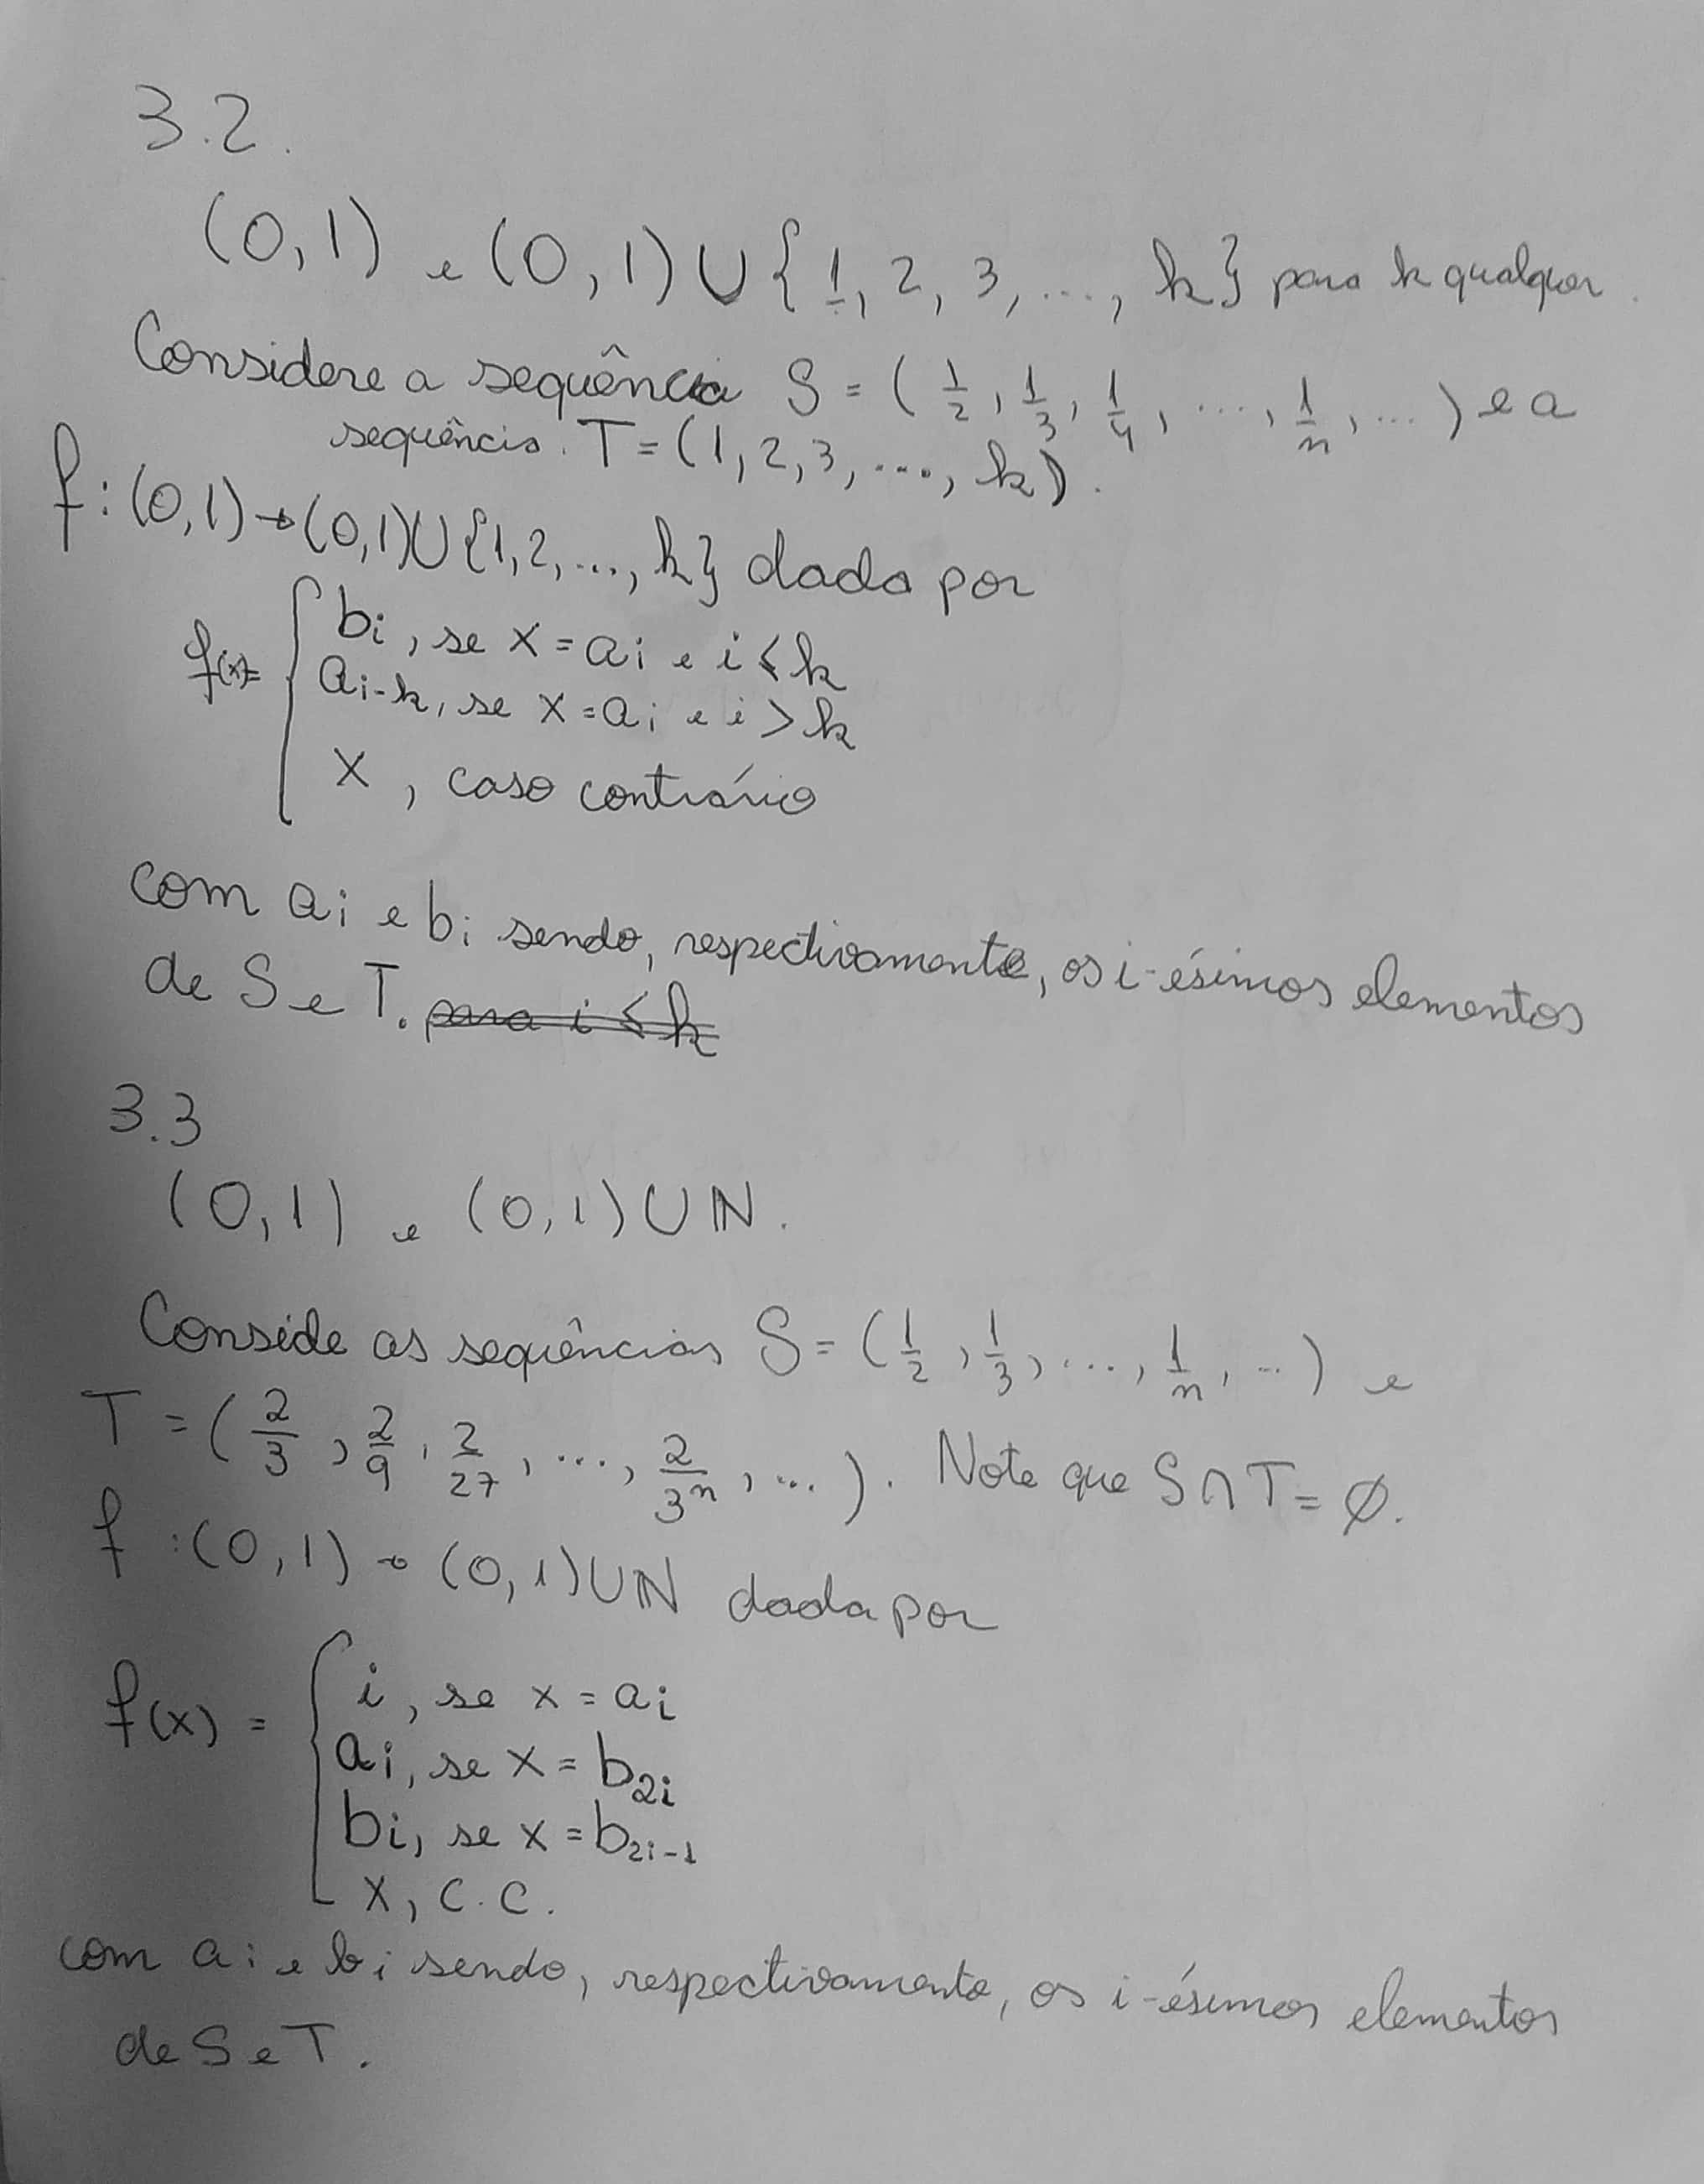 3.2.
(0,1) e (0,1)∪{1, 2, 3, ..., k} para k qualquer.
Considere a sequência S = (1/2, 1/3, 1/4, ..., 1/n, ...) e a
sequência. T = (1, 2, 3, ..., k).
f: (0,1)→(0,1)∪{1,2,...,k} dada por
f(x)= { bi, se x = ai e i ≤ k
ai-k, se x = ai e i > k
x, caso contrário
com ai e bi sendo, respectivamente, os i-ésimos elementos
de S e T. para i ≤ k
3.3
(0,1) e (0,1)∪ℕ.
Conside as sequências S = (1/2, 1/3, ..., 1/n, ...) e
T = (2/3, 2/9, 2/27, ..., 2/3^n, ...). Note que S∩T = ∅.
f: (0,1)→(0,1)∪ℕ dada por
f(x) = { i, se x = ai
ai, se x = b2i
bi, se x = b2i-1
x, c.c.
com ai e bi sendo, respectivamente, os i-ésimos elementos
de S e T.